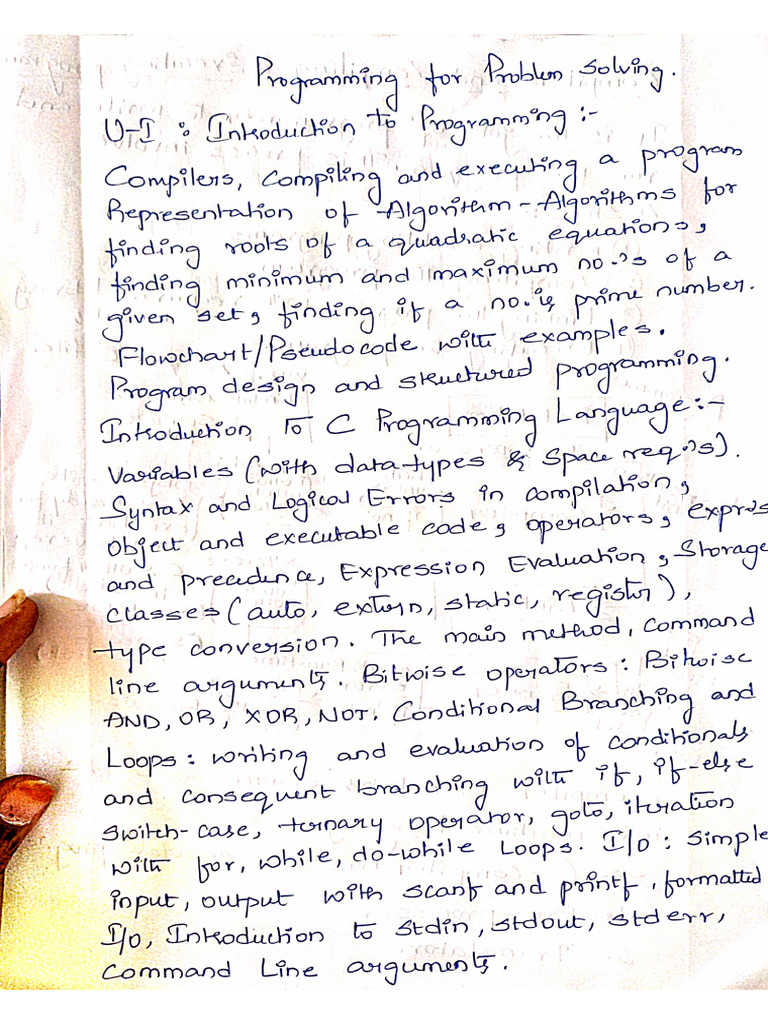 Programming for Problem Solving.
U-I : Introduction to Programming :-
Compilers, compiling and executing a program
Representation of Algorithm - Algorithms for
finding roots of a quadratic equations,
finding minimum and maximum no.'s of a
given set, finding if a no. is prime number.
Flowchart/Pseudocode with examples.
Program design and structured programming.
Introduction To C Programming Language :-
Variables (with data types & Space req.'s).
Syntax and Logical Errors in compilation,
object and executable code, operators, expres
and precedence, Expression Evaluation, Storage
classes (auto, extern, static, register),
type conversion. The main method, command
line arguments. Bitwise operators : Bitwise
AND, OR, XOR, NOT. Conditional Branching and
Loops : writing and evaluation of conditionals
and consequent branching with if, if-else
switch-case, ternary operator, goto, iteration
with for, while, do-while Loops. I/o : simple
input, output with scanf and printf, formatted
I/o, Introduction to stdin, stdout, stderr,
Command Line arguments.